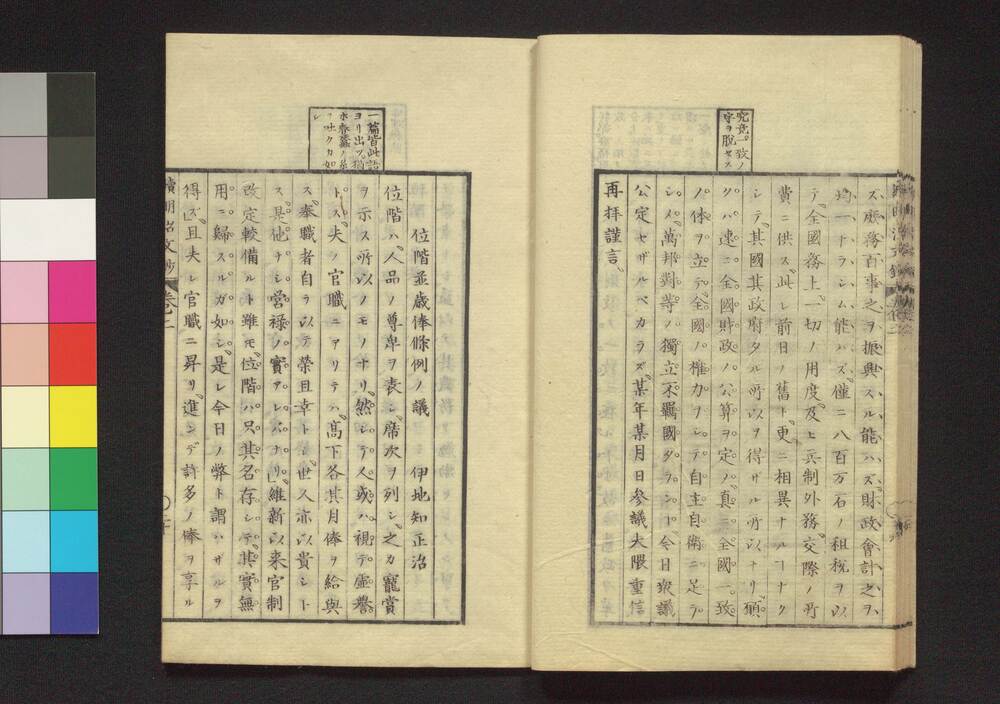 究竟一致ノ
字ヲ脱セス
ズ庶務百事之ヲ振興スル能ハズ財政會計之ヲ
均一ナラシム能ハズ僅ニ八百万石ノ租税ヲ以
テ全國務上一切ノ用度及ヒ兵制外務交際ノ所
費ニ供ス此レ前日ノ舊ト更ニ相異ナルヿナク
シテ其國其政府タル所以ヲ得ザル所以ナリ願
クハ速ニ全國財政ノ公算ヲ定メ真ニ全國一致
ノ体ヲ立テ全國ノ權力ヲシテ自主自衛ニ足ラ
シメ萬邦對等ノ獨立不羈國タランヿ今日衆議
公定セザルベカラズ某年某月日參議大隈重信
再拝謹言
一篇皆此語
ヨリ出ツ猶
ホ春蠶ノ糸
ヲ吐クカ如
シ
位階並歳俸條例ノ議 伊地知正治
位階ハ人品ノ尊卑ヲ表シ席次ヲ列シ之カ寵賞
ヲ示ス所以ノモノナリ然シテ人或ハ視テ虚譽
トス夫ノ官職ニアリテハ高下各其月俸ヲ給與
ス奉職者自ラ以テ榮且幸トシ世人亦以貴シト
ス是他ナシ營禄ノ實アレバナリ維新以来官制
改定較備ルト雖モ位階ハ只其名存シテ其實無
用ニ歸スルガ如シ是レ今日ノ弊ト謂ハザルヲ
得ズ且夫レ官職ニ昇リ進ンデ許多ノ俸ヲ享ル
續明治文鈔 巻之二